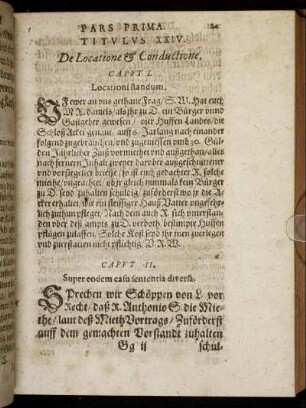 PARS PRIMA.
TITVLVS XXIV.
De Locatione & Conductione.
CAPVT I.
Locationi standum.
Auff ewer an vns gethane Frag/ S. W. Hat euch
W. R. damals/ als ihr zu D. ein Bürger vnnd
Gastgeber gewesen/ vier Huffen Landes/ die
Schloß Äcker genant/ auff 5. Jarlang nach einander
folgend zugebrauchen/ vnd zugeniessen vmb 20. Gül-
den Jährlicher Zinß vormietet vnd außgethan/ alles
nach fernern Inhalt zweyer darüber auffgeschnittener
vnd vorsiegelter brieffe/ so ist euch gedachter R. solche
miethe/ vngeachtet/ ob ihr gleich nunmals kein Bürger
zu D. seyd/ zuhalten schüldig/ zuförderst wo jr die Äc-
cker erhaltet/ wie ein fleissiger Hauß Vatter vngefehr-
lich zuthun pfleget/ Nach dem auch R. sich vnterstan-
den
pflüget zulassen/ Solche Kost seyd ihr jme zuerlegen
vnd zuerstatten nicht pflichtig/ V. R. W.
CAPVT II.
Super eodem casu sententia diversa.
Sprechen wir Schöppen von L. vor
Recht/ daß R. Anthonio S. die Mie-
the/ laut deß Mieth Vortrags/ Zuförderst
auff dem gemachten Vorstandt zuhalten
Gg ij schül-